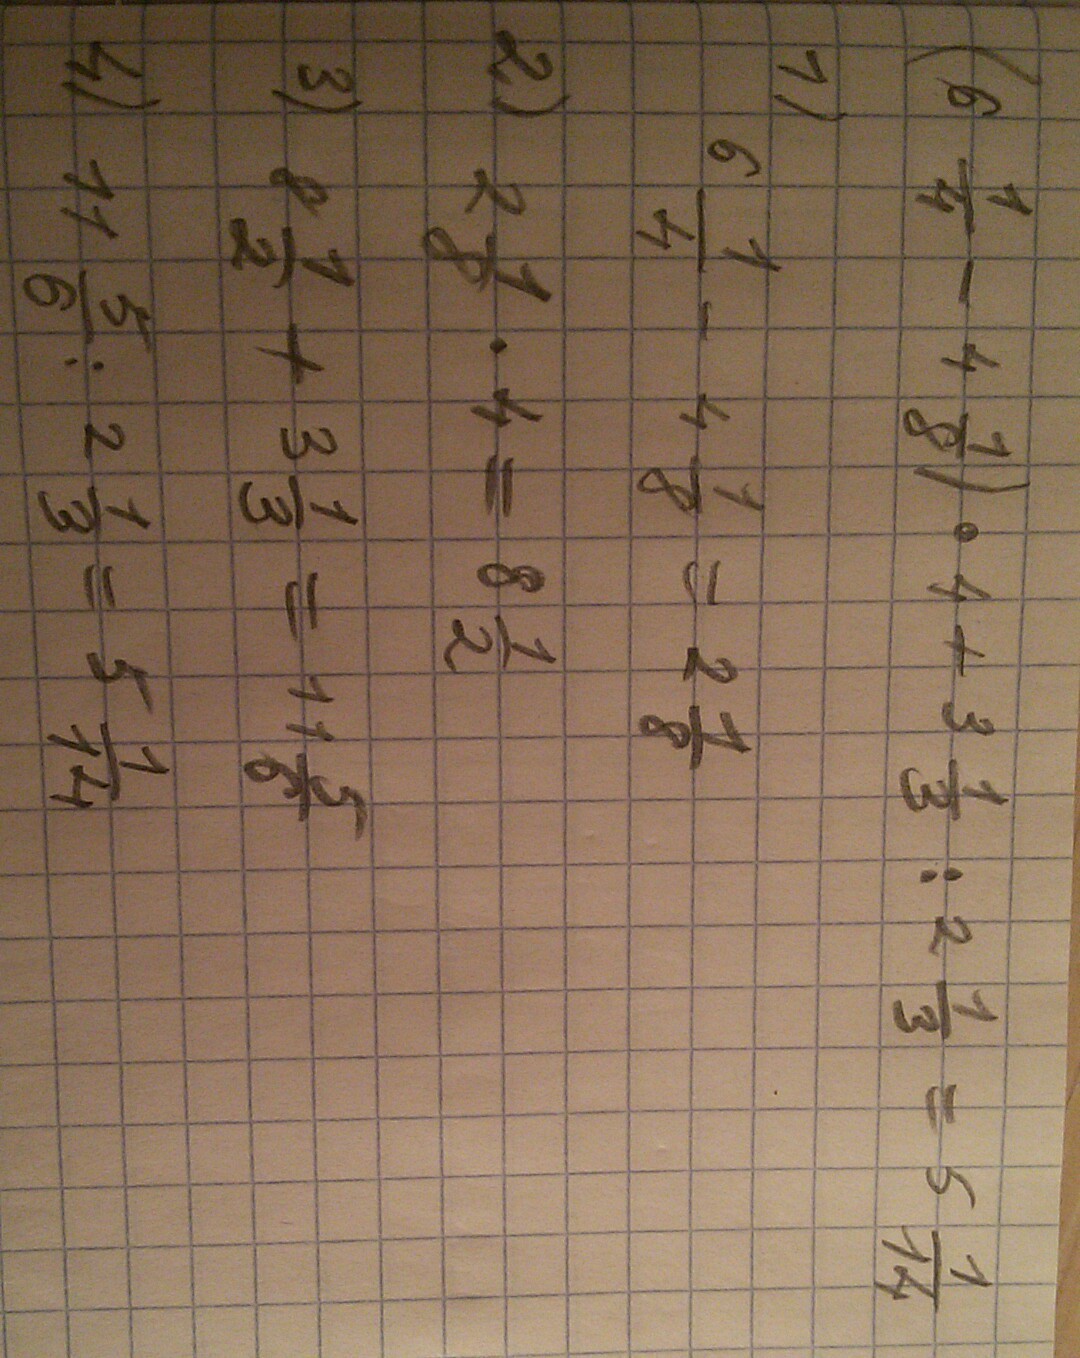 (6 1/4 - 4 1/8) · 4 + 3 1/3 : 2 1/3 = 5 1/14
1)
6 1/4 - 4 1/8 = 2 1/8
2) 2 1/8 · 4 = 8 1/2
3) 8 1/2 + 3 1/3 = 11 5/6
4) 11 5/6 : 2 1/3 = 5 1/14